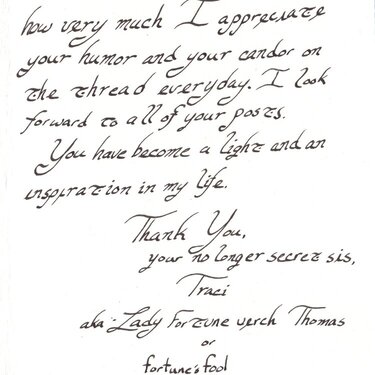 how very much I appreciate
your humor and your candor on
the thread everyday. I look
forward to all of your posts.
You have become a light and an
inspiration in my life.
Thank You,
your no longer secret sis,
Traci
aka - Lady Fortune verch Thomas
or
fortune's fool